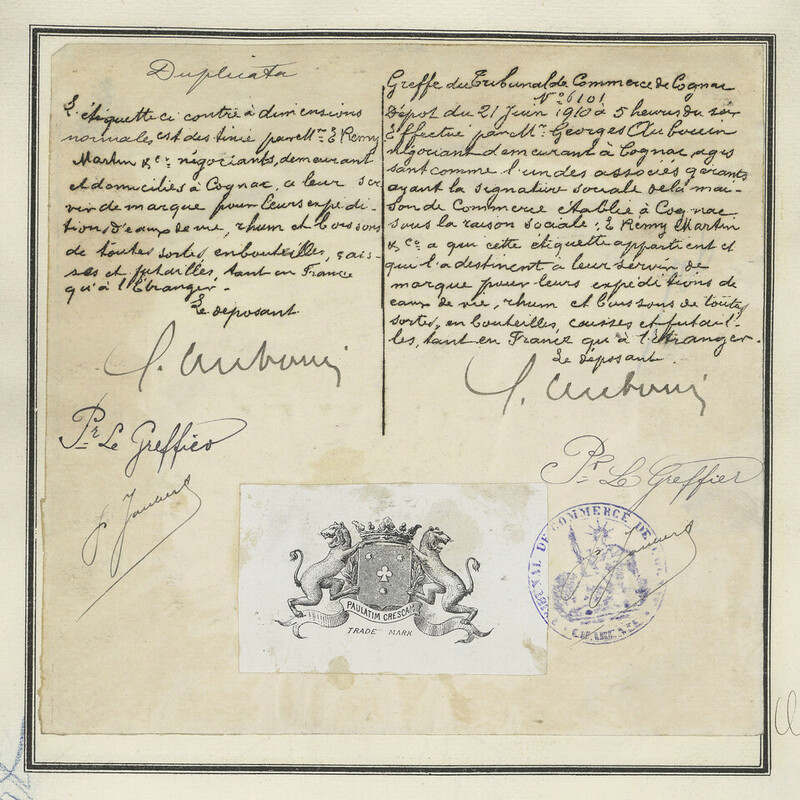 Duplicata
L'étiquette ci contre à dimensions
normales est destinée par Mm. E Remy
Martin & Cie négociants, demeurant
et domiciliés à Cognac, a leur ser
vir de marque pour leurs expédi-
tions d'eaux de vie, rhum et boissons
de toutes sortes, en bouteilles, cais-
ses et futailles, tant en France
qu'à l'Etranger.
Le déposant
Pr Le Greffier
Greffe du Tribunal de Commerce de Cognac
No 6101
Dépot du 21 Juin 1910 à 5 heures du soir
Effectué par Mr. Georges Aubouin
négociant demeurant à Cognac, agis
sant comme l'un des associés gérants
ayant la signature sociale de la mai-
son de Commerce établie à Cognac
sous la raison sociale: E Remy Martin
& Co a qui cette étiquette appartient et
qui l'a destinent a leur servir de
marque pour leurs expéditions de
eaux de vie, rhum et boissons de toutes
sortes, en bouteilles, caisses et futail-
les, tant en France qu'à l'étranger.
Le déposant
G. Aubouin
Pr Le Greffier
PAULATIM CRESCAM
TRADE MARK
TRIBUNAL DE COMMERCE DE